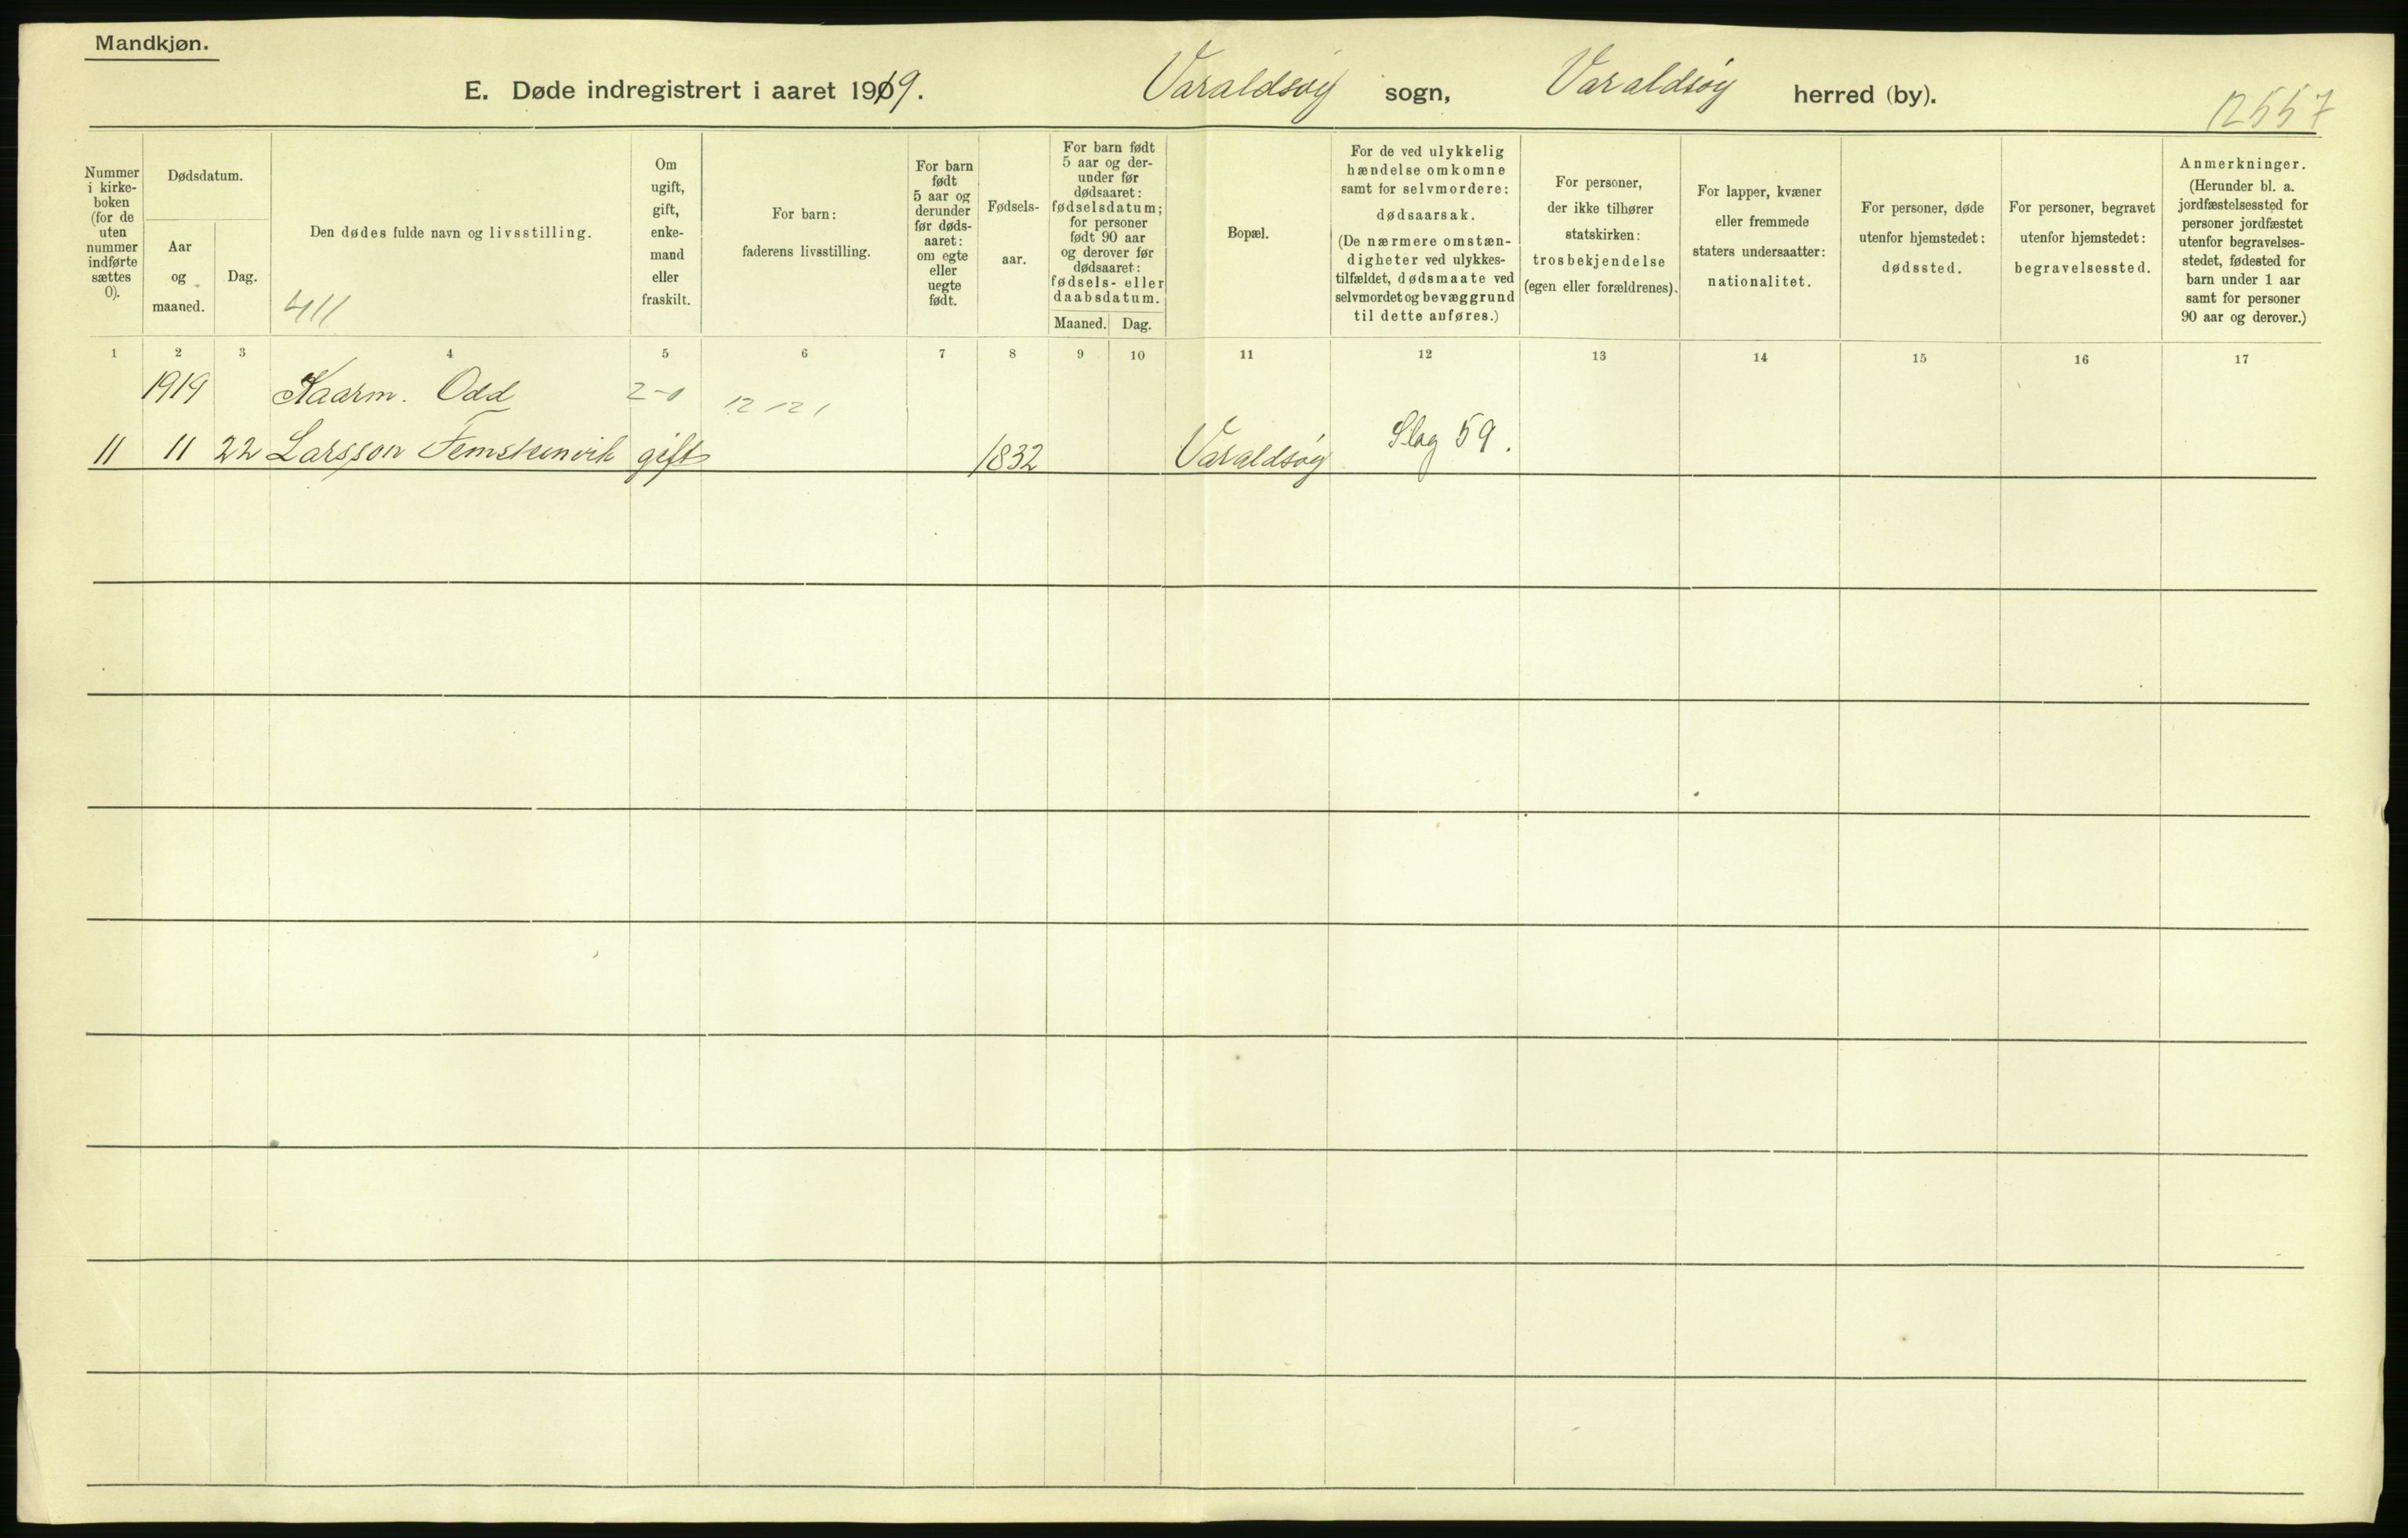 Mandkjøn.
E. Døde indregistrert i aaret 1919. Varaldsøy sogn, Varaldsøy herred (by).
12557
Nummer i kirke-boken (for de uten nummer indførte sættes 0).
Dødsdatum.
Aar og maaned.
Dag.
Den dødes fulde navn og livsstilling.
411
Om ugift, gift, enke-mand eller fraskilt.
For barn: faderens livsstilling.
For barn født 5 aar og derunder før døds-aaret: om egte eller uegte født.
Fødsels-aar.
For barn født 5 aar og der-under før dødsaaret: fødselsdatum; for personer født 90 aar og derover før dødsaaret: fødsels- eller daabsdatum.
Maaned. Dag.
Bopæl.
For de ved ulykkelig hændelse omkomne samt for selvmordere: dødsaarsak. (De nærmere omstæn-digheter ved ulykkes-tilfældet, dødsmaate ved selvmordet og bevæggrund til dette anføres.)
For personer, der ikke tilhører statskirken: trosbekjendelse (egen eller forældrenes).
For lapper, kvæner eller fremmede staters undersaatter: nationalitet.
For personer, døde utenfor hjemstedet: dødssted.
For personer, begravet utenfor hjemstedet: begravelsessted.
Anmerkninger. (Herunder bl. a. jordfæstelsessted for personer jordfæstet utenfor begravelses-stedet, fødested for barn under 1 aar samt for personer 90 aar og derover.)
1 2 3 4 5 6 7 8 9 10 11 12 13 14 15 16 17
1919 Kaarm. Odd 2-1 12 121
11 11 22 Larsson Femsteinvik gift 1832 Varaldsøy Slag 59.